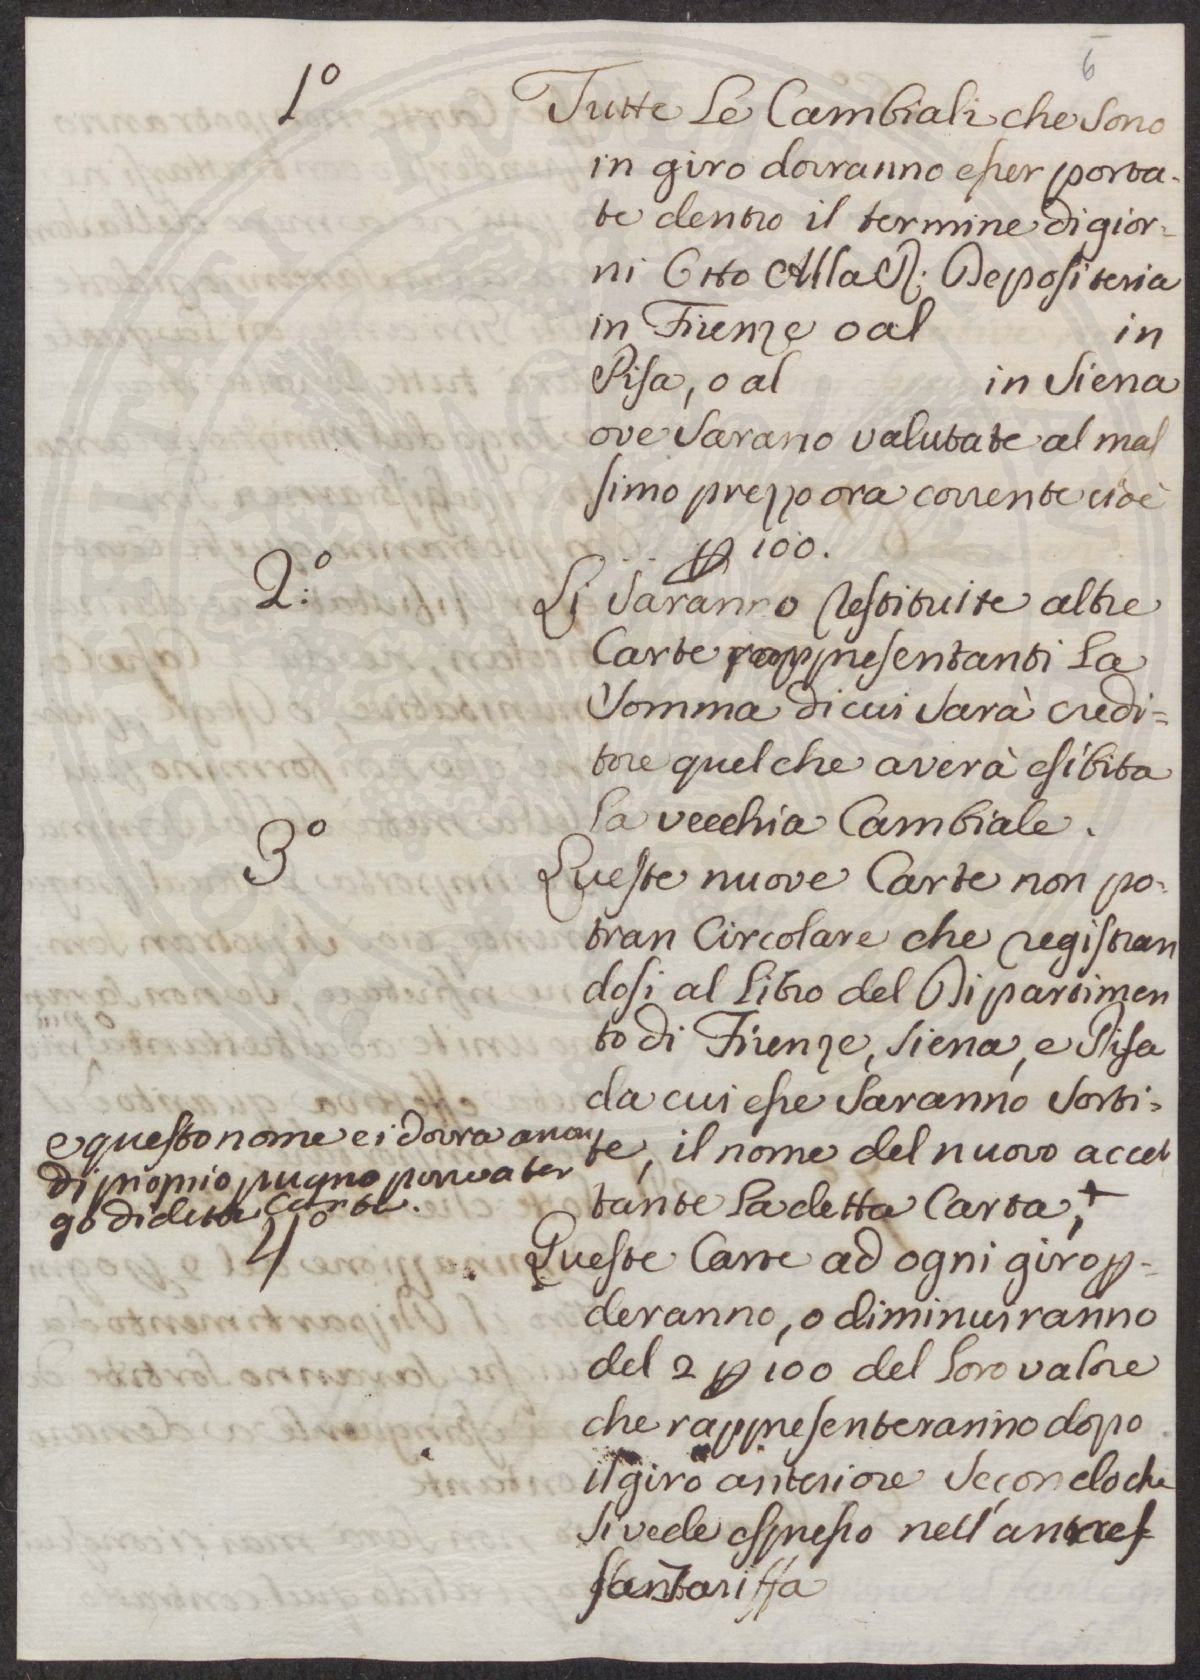 6
1º
Tutte Le Cambiali che Sono
in giro dovranno esser porta-
te dentro il termine di gior=
ni Otto Alla R. Depositeria
in Firenze o al in
Pisa, o al in Siena
ove Sarano valutate al mas
simo prezzo ora corrente cioè
p 100.
2:º
Li Saranno Restituite altre
Carte rappresentanti La
Somma di cui Sarà credi=
tore quel che averà esibita
La vecchia Cambiale.
3º
Queste nuove Carte non po-
tran Circolare che registran
dosi al Libro del Dipartimen
to di Firenze, Siena, e Pisa
da cui esse Saranno Sorti=
te, il nome del nuovo accet
tante La detta Carta, +
e questo nome ei dovra ancor
di proprio pugno porre a ter
go di detta Carta.
4º
Queste Carte ad ogni giro p-
deranno, o diminuiranno
del 2 p 100 del Loro valore
che rappresenteranno dopo
il giro anteriore Secondo che
Si vede espresso nell'an
Tariffa